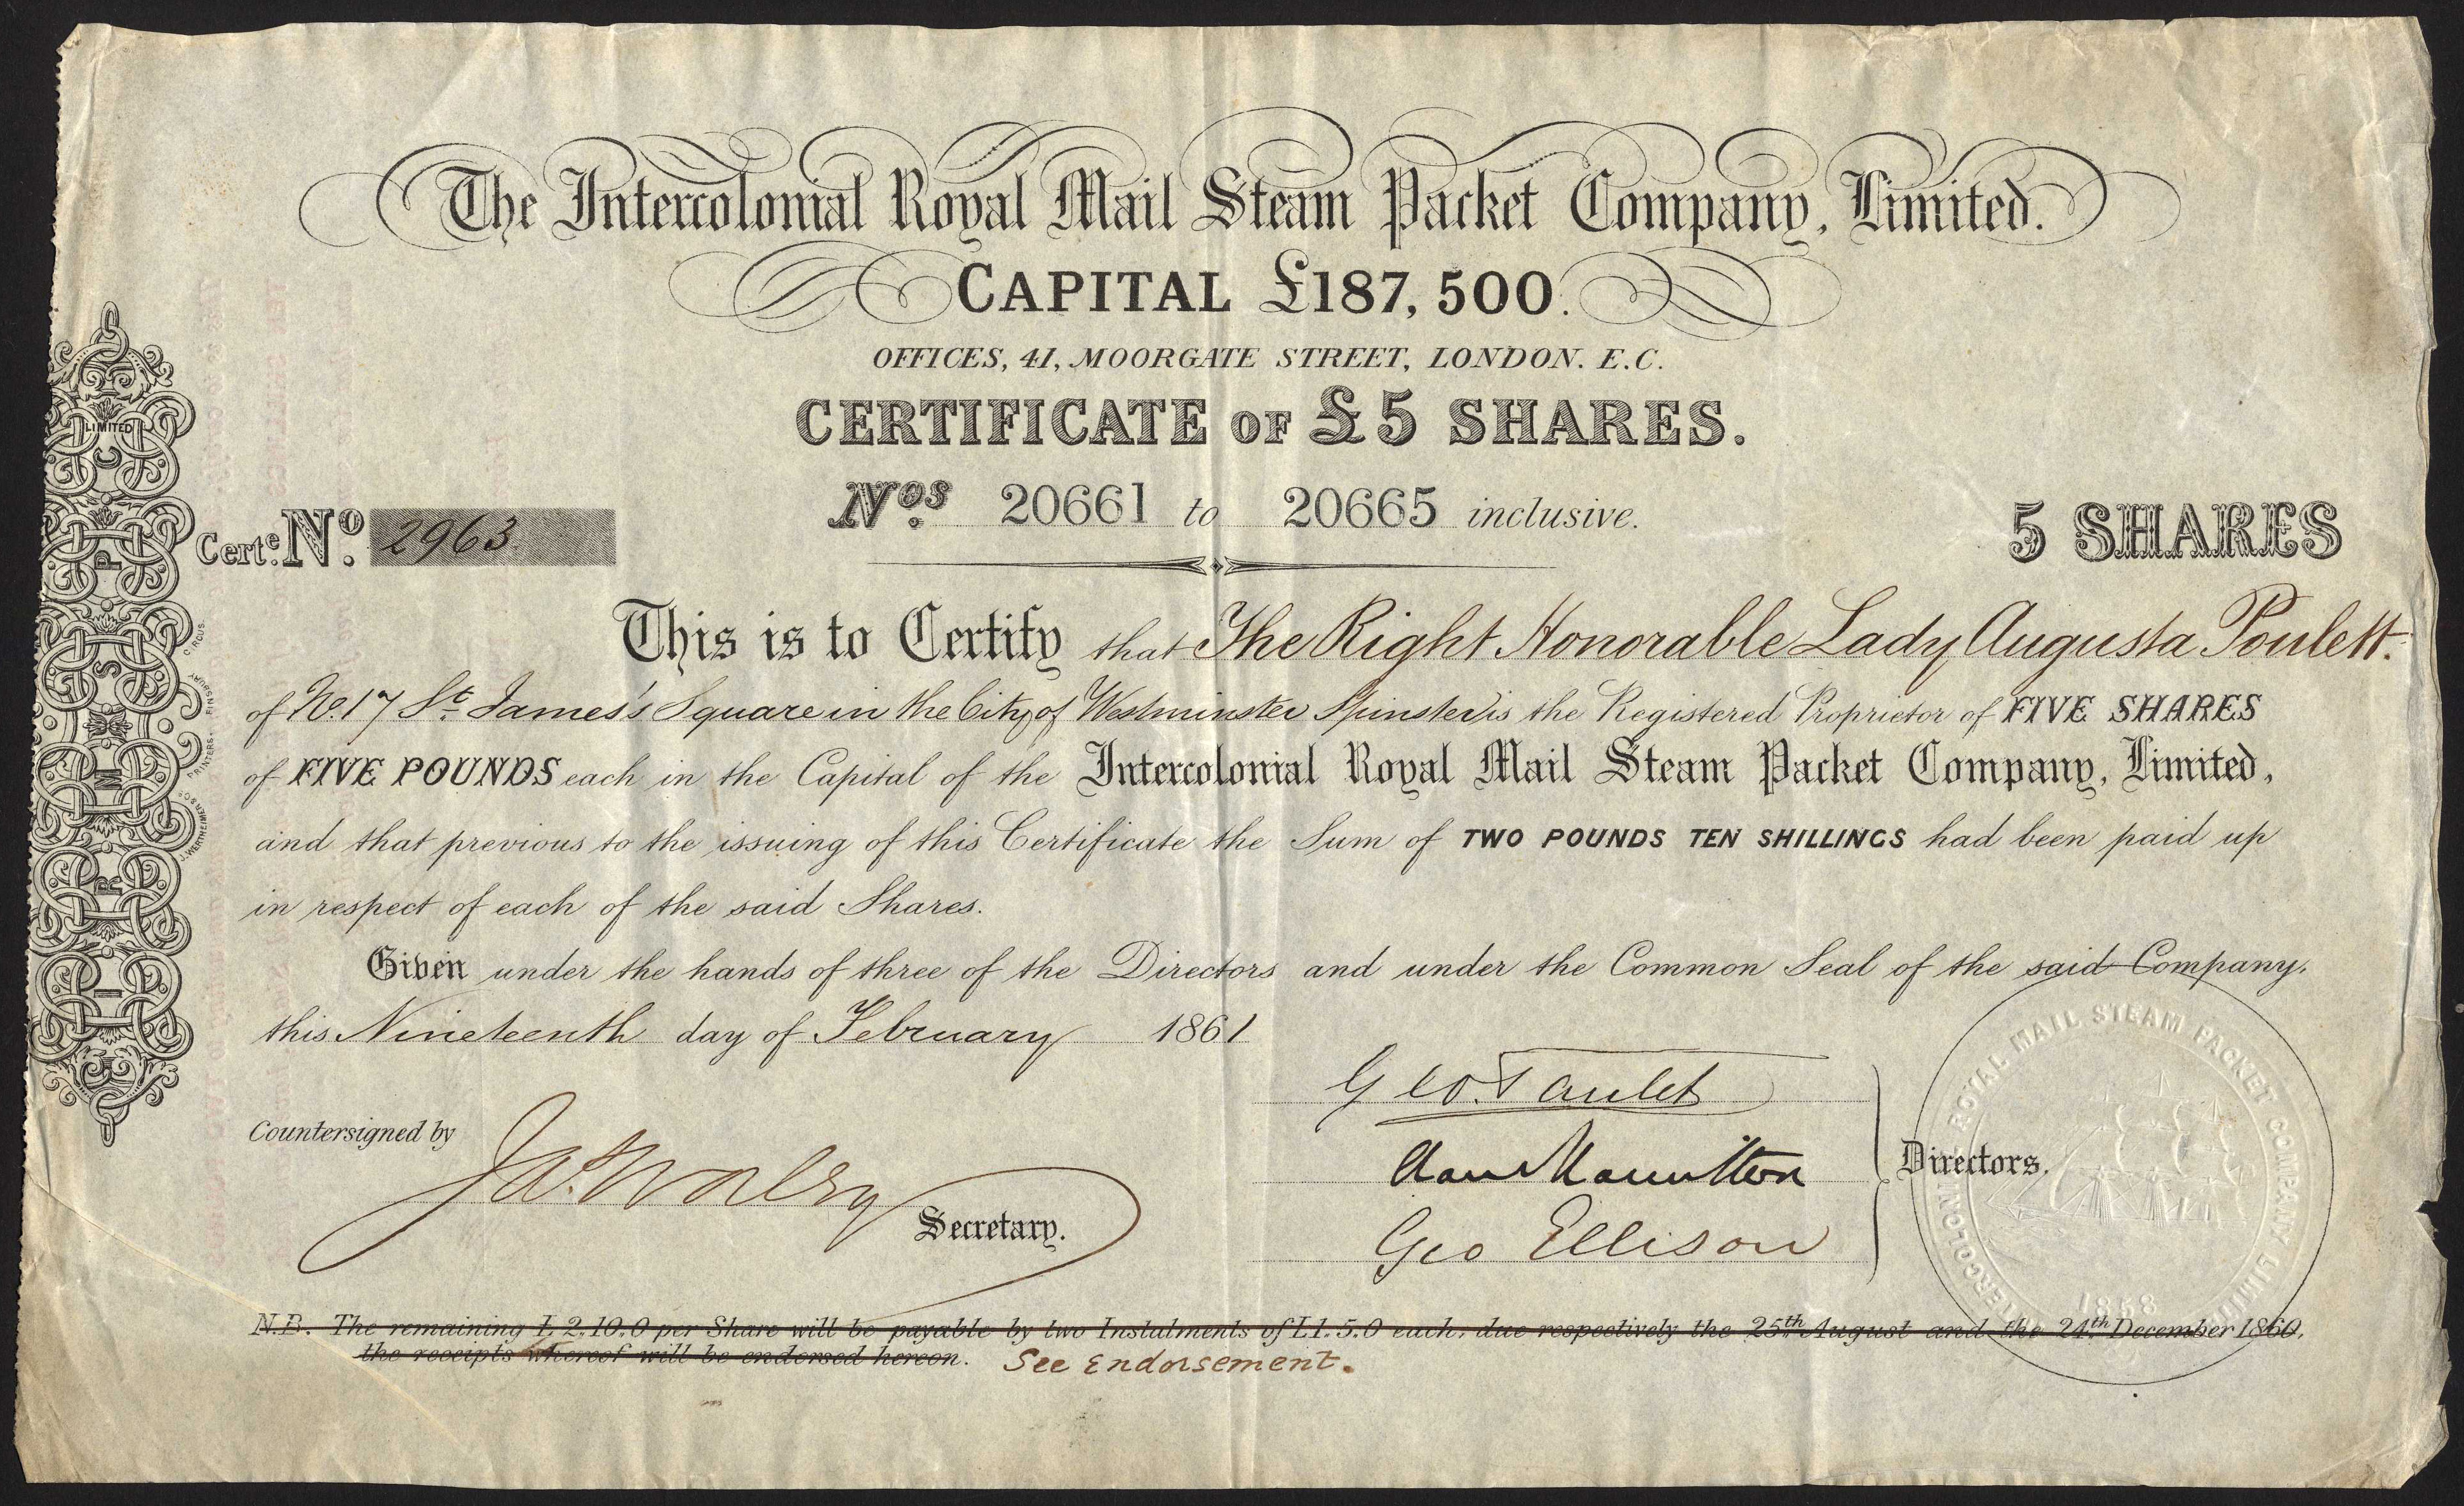 The Intercolonial Royal Mail Steam Packet Company, Limited.
CAPITAL £187,500.
OFFICES, 41, MOORGATE STREET, LONDON. E.C.
CERTIFICATE OF £5 SHARES.
Nos. 20661 to 20665 inclusive.
Certe. No. 2963.
5 SHARES
This is to Certify that The Right Honorable Lady Augusta Poulett.
of No. 17 St. James's Square in the City of Westminster Spinster is the Registered Proprietor of FIVE SHARES
of FIVE POUNDS each in the Capital of the Intercolonial Royal Mail Steam Packet Company, Limited,
and that previous to the issuing of this Certificate the Sum of TWO POUNDS TEN SHILLINGS had been paid up
in respect of each of the said Shares.
Given under the hands of three of the Directors and under the Common Seal of the said Company.
this Nineteenth day of February 1861
Countersigned by
Secretary.
Geo. Paulet
Hamilton
Geo Ellison
Directors.
N.B. The remaining £2.10.0 per Share will be payable by two Instalments of £1.5.0 each, due respectively the 25th August and the 24th December 1860,
the receipts whereof will be endorsed hereon. See Endorsement.
INTERCOLONIAL ROYAL MAIL STEAM PACKET COMPANY LIMITED
1858
LIMITED
I R M S P C
J. WERTHEIMER & CO. PRINTERS. FINSBURY CIRCUS.